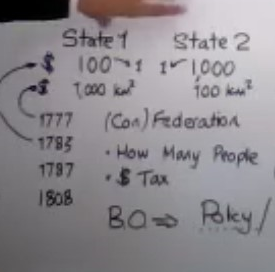 State 1 State 2
$ 100 → 1 1 ← 1,000
$ 1,000 km² 100 km²
1777 (Con) Federation
1783 • How Many People
1787 • $ Tax
1808
B.O ⇒ Policy /